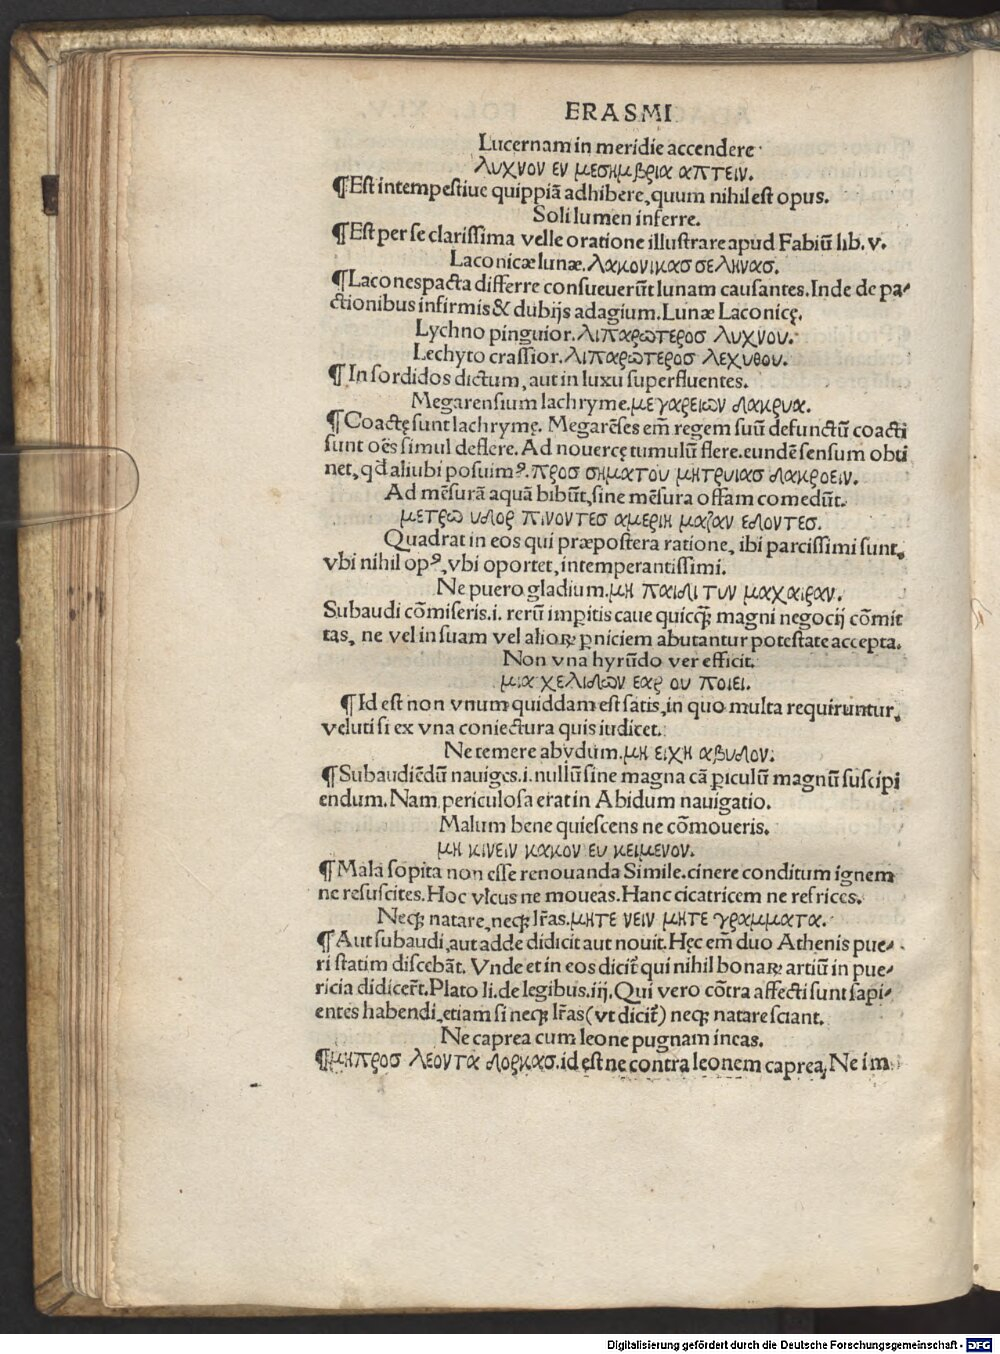 ERASMI
Lucernam in meridie accendere
λυχνον εν μεσημβρια απτειν.
¶Est intempestiue quippiã adhibere, quum nihil est opus.
Soli lumen inferre.
¶Est per se clarissima velle oratione illustrare apud Fabiũ lib. v.
Laconicæ lunæ. λακονικασ σεληνασ.
¶Lacones pacta differre consueuerũt lunam causantes. Inde de pa-
ctionibus infirmis & dubijs adagium. Lunæ Laconicę.
Lychno pinguior. λιπαρωτεροσ λυχνου.
Lechyto crassior. λιπαρωτεροσ λεχυθου.
¶In sordidos dictum, aut in luxu superfluentes.
Megarensium lachryme. μεγαρειων δακρυα.
¶Coactę sunt lachrymę. Megarẽses em̃ regem suũ defunctũ coacti
sunt oẽs simul deflere. Ad nouercę tumulũ flere. eundẽ sensum obti
net, qđ aliubi posuimꝰ. προσ σηματου μητρυιασ δακροειν.
Ad mẽsurã aquã bibũt, sine mẽsura offam comedũt.
μετρω υδορ πινοντεσ αμεριη μαζαν εδοντεσ.
Quadrat in eos qui præpostera ratione, ibi parcissimi sunt,
vbi nihil opꝰ, vbi oportet, intemperantissimi.
Ne puero gladium. μη παιδι τυν μαχαιραν.
Subaudi cõmiseris. i. rerũ imꝑitis caue quicꝗ̃ magni negocij cõmit
tas, ne vel in suam vel alioꝝ ꝑniciem abutantur potestate accepta.
Non vna hyrũdo ver efficit.
μια χελιδων εαρ ου ποιει.
¶Id est non vnum quiddam est satis, in quo multa requiruntur,
veluti si ex vna coniectura quis iudicet.
Ne temere abydum. μη ειχη αβυδον.
¶Subaudiẽdũ nauiges. i. nullũ sine magna cã ꝑiculũ magnũ suscipi
endum. Nam periculosa erat in Abidum nauigatio.
Malum bene quiescens ne cõmoueris.
μη κινειν κακον ευ κειμενον.
¶Mala sopita non esse renouanda Simile. cinere conditum ignem
ne resuscites. Hoc vlcus ne moueas. Hanc cicatricem ne refrices.
Neqꝫ natare, neqꝫ lr̃as. μητε νειν μητε γραμματα.
¶Aut subaudi, aut adde didicit aut nouit. Hęc em̃ duo Athenis pue-
ri statim discebãt. Vnde et in eos dicit̃ qui nihil bonaꝝ artiũ in pue-
ricia didicer̃t. Plato li. de legibus. iij. Qui vero cõtra affecti sunt sapi-
entes habendi, etiam si neqꝫ lr̃as (vt dicit̃) neqꝫ natare sciant.
Ne caprea cum leone pugnam ineas.
¶μηπροσ λεοντα δορκασ. id est ne contra leonem caprea, Ne im
Digitalisierung gefördert durch die Deutsche Forschungsgemeinschaft - DFG